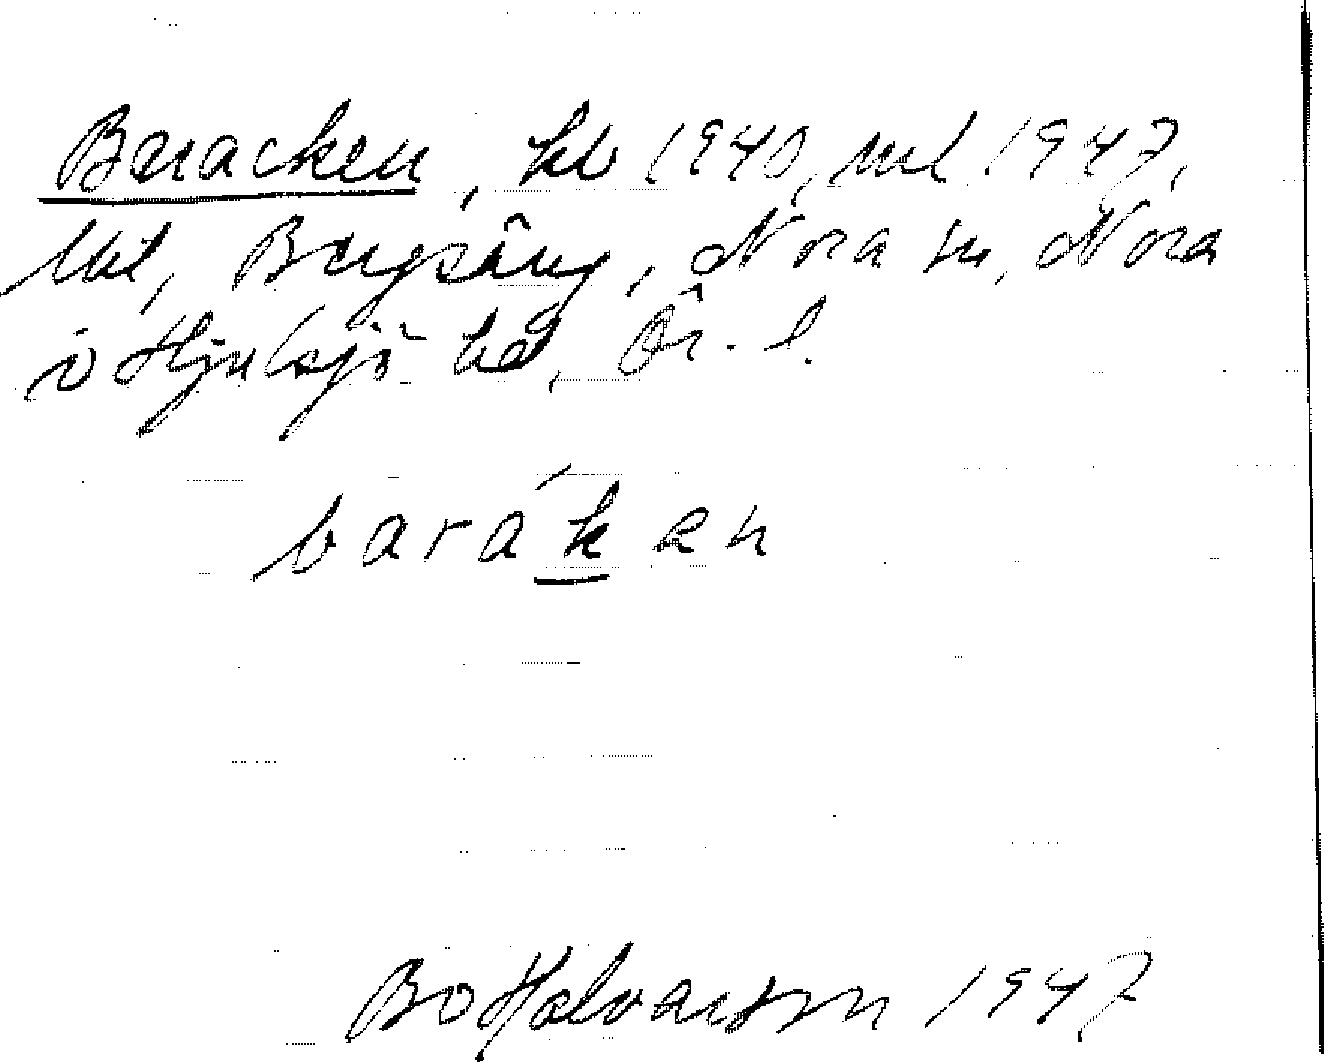 Baracken, kb 1940, ml 1947,
lht, Bergsäng, Nora sn, Nora
o Hjulsjö hd, Ör. l.
barák en
Bo Halvarson 1947